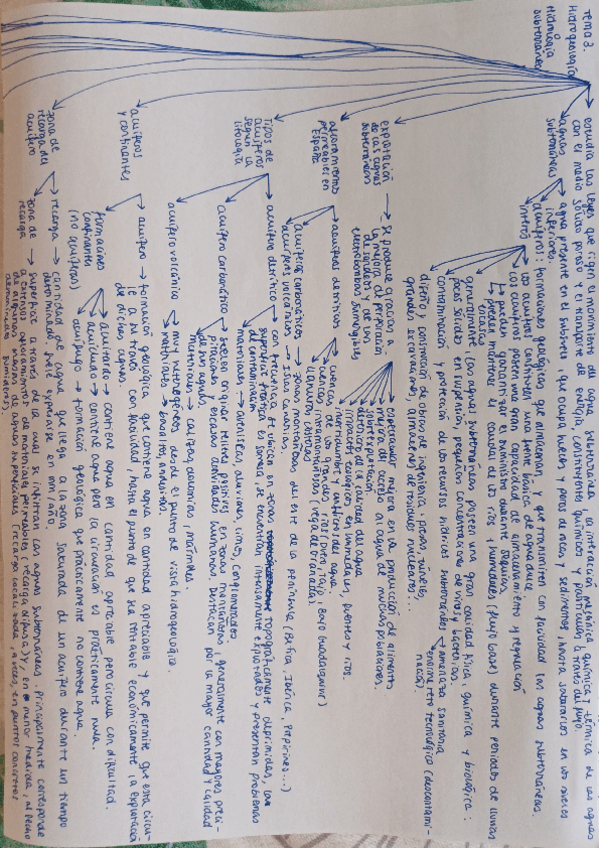 Tema 3.
Hidrogeología
Hidrología
subterránea
estudia las leyes que rigen el movimiento del agua subterránea, la interacción mecánica, química y térmica de las aguas
con el medio sólido poroso y el transporte de energía, constituyentes químicos y partículas a través del flujo.
aguas
subterráneas
agua presente en el subsuelo, que ocupa huecos y poros de rocas y sedimentos, hasta saturarlos en los niveles
inferiores.
acuíferos: formaciones geológicas que almacenan, y que transmiten con facilidad las aguas subterráneas.
interés
los acuíferos constituyen una fuente básica de agua dulce.
los acuíferos poseen una gran capacidad de almacenamiento y regulación
pueden garantizar el suministro durante sequías.
permite mantener caudal de los ríos y humedales (flujo base) durante periodos de lluvias
escasas
generalmente, las aguas subterráneas poseen una gran calidad física, química y biológica:
pocos sólidos en suspensión, pequeñas concentraciones de virus y bacterias.
contaminación y protección de los recursos hídricos subterráneos
amenaza sanitaria
enorme reto tecnológico (descontami-
nación).
diseño y construcción de obras de ingeniería, presas, túneles,
grandes excavaciones, almacenes de residuos nucleares...
explotación
de las aguas
subterráneas
se produce gracias a
la mejora de perforación
de sondeos y de las
electrobombas sumergibles
espectacular mejora en la producción de alimentos
mejora del acceso al agua de muchas poblaciones.
sobreexplotación
deterioro de la calidad del agua
impactos ecológicos en humedales, fuentes y ríos.
afloramientos
permeables en
España
acuíferos detríticos
cuencas
de los grandes ríos (
cuencas intramontañosas (vega de Granada)
llanuras costeras
acuíferos carbonáticos
zonas montañosas del este de la península (Bética, Ibérica, Pirineos...)
acuíferos volcánicos
Islas Canarias.
tipos de
acuíferos
según la
litología
acuífero detrítico
con frecuencia se ubican en zonas topográficamente deprimidas, la
superficie freática es somera, se encuentran intensamente explotados y presentan problemas
de contaminación
materiales
areniscas, aluviones, limos, conglomerados
acuífero carbonático
suelen ocupar relieves positivos, en zonas montañosas, generalmente con mayores preci-
pitaciones y escasas actividades humanas, destacan por la mayor cantidad y calidad
de sus aguas.
materiales
calizas, dolomías, mármoles.
acuífero volcánico
muy heterogéneos desde el punto de vista hidrogeológico.
materiales
basaltos, andesitas.
acuíferos
y confinantes
acuífero
formación geológica que contiene agua en cantidad apreciable y que permite que esta circu-
le a su través con facilidad, hasta el punto de que sea rentable económicamente la explotación
de dichas aguas.
formaciones
confinantes
(no acuíferos)
acuitardo
contiene agua en cantidad apreciable pero circula con dificultad.
acuicludo
contiene agua pero la circulación es prácticamente nula.
acuífugo
formación geológica que prácticamente no contiene agua.
zona de
recarga del
acuífero
recarga
cantidad de agua que llega a la zona saturada de un acuífero durante un tiempo
determinado, suele expresarse en mm/año.
zona de
recarga
superficie a través de la cual se infiltran las aguas subterráneas. Principalmente corresponde
a extensos afloramientos de materiales permeables (recarga difusa) y, en menor medida, al lecho
de algunas masas de aguas superficiales (recarga localizada, a veces, en puntos concretos
denominados sumideros).